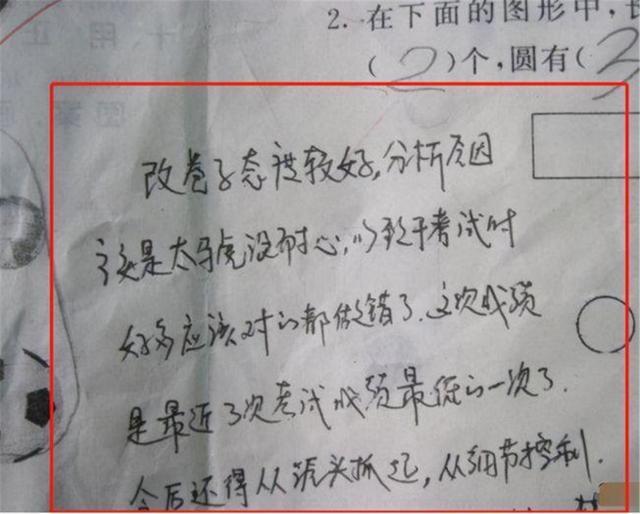 2. 在下面的图形中,
(2)个,圆有(3
改卷子态度较好,分析原因
是太马虎没耐心,以致于考试时
好多应该对的都做错了.这次成绩
是最近3次考试成绩最低的一次了.
今后还得从源头抓起,从细节控制.